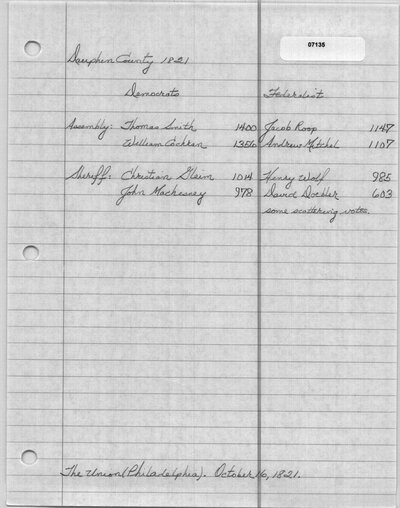 07135
Dauphin County 1821
Democrats Federalist
Assembly: Thomas Smith 1400 Jacob Roop 1147
William Cochran 1356 Andrew Mitchel 1107
Sheriff: Christian Gleim 1014 Henry Wolf 985
John Machesney 978 David Doebler 603
some scattering votes.
The Union (Philadelphia). October 16, 1821.